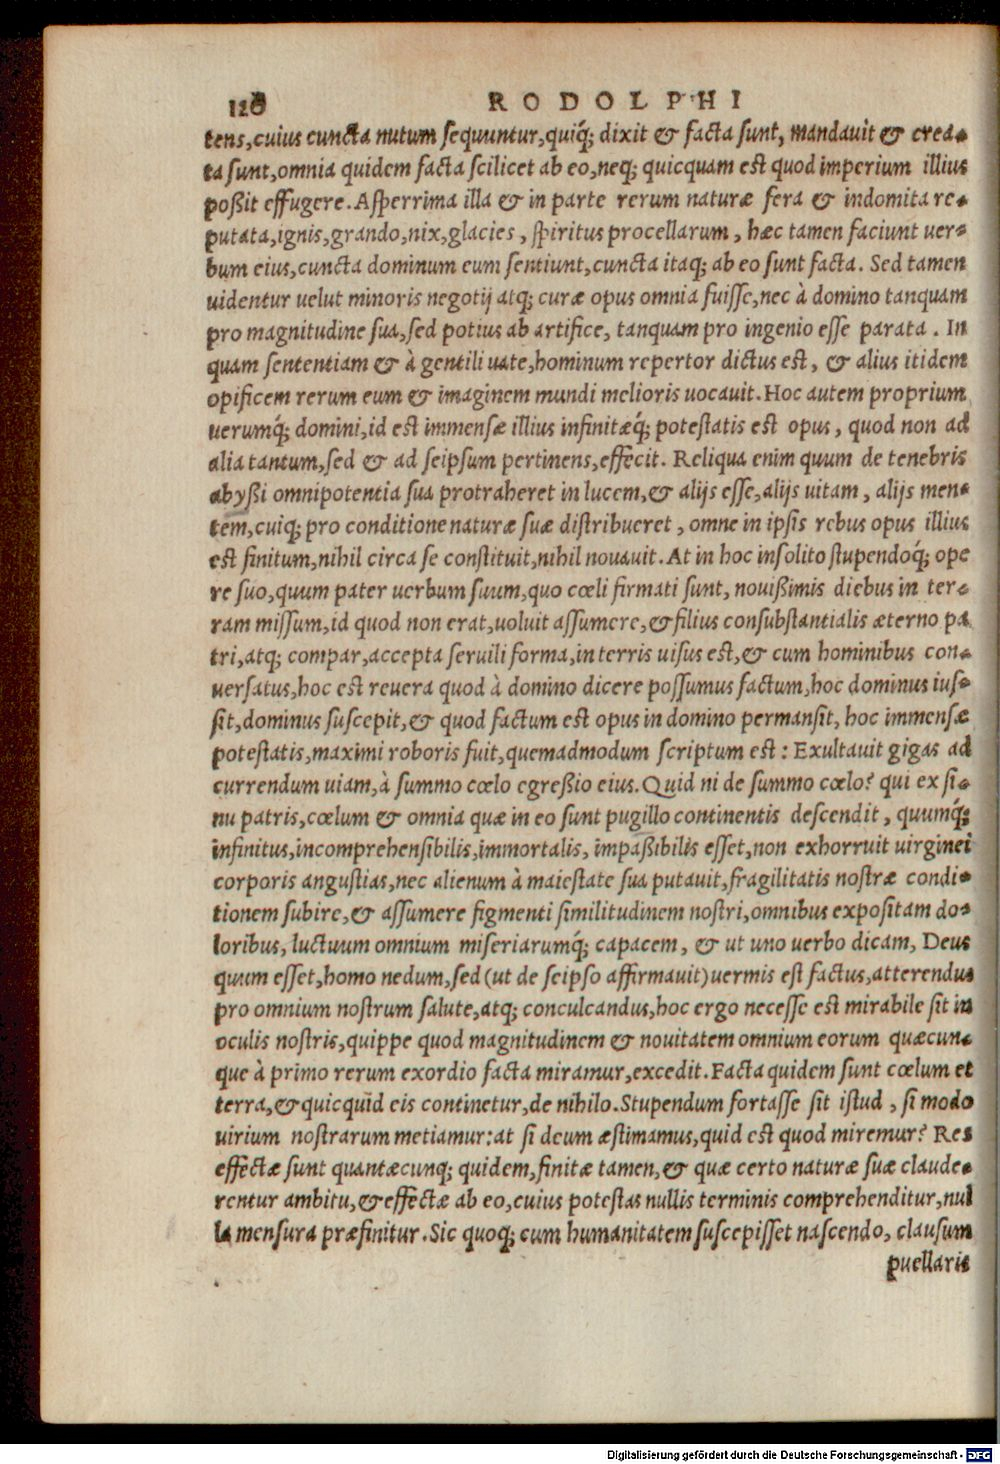 120 RODOLPHI
tens,cuius cuncta nutum sequuntur,quiq́; dixit & facta sunt, mandauit & crea-
ta sunt,omnia quidem facta scilicet ab eo,neq; quicquam est quod imperium illius
poßit effugere. Asperrima illa & in parte rerum naturæ fera & indomita re-
putata,ignis,grando,nix,glacies, spiritus procellarum, hæc tamen faciunt uer-
bum eius,cuncta dominum eum sentiunt,cuncta itaq; ab eo sunt facta. Sed tamen
uidentur uelut minoris negotij atq; curæ opus omnia fuisse,nec à domino tanquam
pro magnitudine sua,sed potius ab artifice, tanquam pro ingenio esse parata. In
quam sententiam & à gentili uate,hominum repertor dictus est, & alius itidem
opificem rerum eum & imaginem mundi melioris uocauit. Hoc autem proprium
uerumq́; domini,id est immensæ illius infinitæq́; potestatis est opus, quod non ad
alia tantum,sed & ad seipsum pertinens,effecit. Reliqua enim quum de tenebris
abyßi omnipotentia sua protraheret in lucem,& alijs esse,alijs uitam, alijs men-
tem,cuiq; pro conditione naturæ suæ distribueret, omne in ipsis rebus opus illius
est finitum,nihil circa se constituit,nihil nouauit. At in hoc insolito stupendoq́; ope
re suo,quum pater uerbum suum,quo cœli firmati sunt, nouißimis diebus in ter-
ram missum,id quod non erat,uoluit assumere,& filius consubstantialis æterno pa
tri,atq; compar,accepta seruili forma,in terris uisus est,& cum hominibus con-
uersatus,hoc est reuera quod à domino dicere possumus factum,hoc dominus ius-
sit,dominus suscepit,& quod factum est opus in domino permansit, hoc immensæ
potestatis,maximi roboris fuit,quemadmodum scriptum est: Exultauit gigas ad
currendum uiam,à summo cœlo egreßio eius. Quid ni de summo cœlo? qui ex si-
nu patris,cœlum & omnia quæ in eo sunt pugillo continentis descendit, quumq́;
infinitus,incomprehensibilis,immortalis, impaßibilis esset,non exhorruit uirginei
corporis angustias,nec alienum à maiestate sua putauit,fragilitatis nostræ condi-
tionem subire,& assumere figmenti similitudinem nostri,omnibus expositam do-
loribus, luctuum omnium miseriarumq́; capacem, & ut uno uerbo dicam, Deus
quum esset,homo nedum,sed (ut de seipso affirmauit) uermis est factus,atterendus
pro omnium nostrum salute,atq; conculcandus,hoc ergo necesse est mirabile sit in
oculis nostris,quippe quod magnitudinem & nouitatem omnium eorum quæcun-
que à primo rerum exordio facta miramur,excedit. Facta quidem sunt cœlum et
terra,& quicquid eis continetur,de nihilo. Stupendum fortasse sit istud, si modo
uirium nostrarum metiamur: at si deum æstimamus,quid est quod miremur? Res
effectæ sunt quantæcunq; quidem,finitæ tamen,& quæ certo naturæ suæ claude-
rentur ambitu,& effectæ ab eo,cuius potestas nullis terminis comprehenditur,nul
la mensura præfinitur. Sic quoq; cum humanitatem suscepisset nascendo, clausum
puellaris
Digitalisierung gefördert durch die Deutsche Forschungsgemeinschaft - DFG